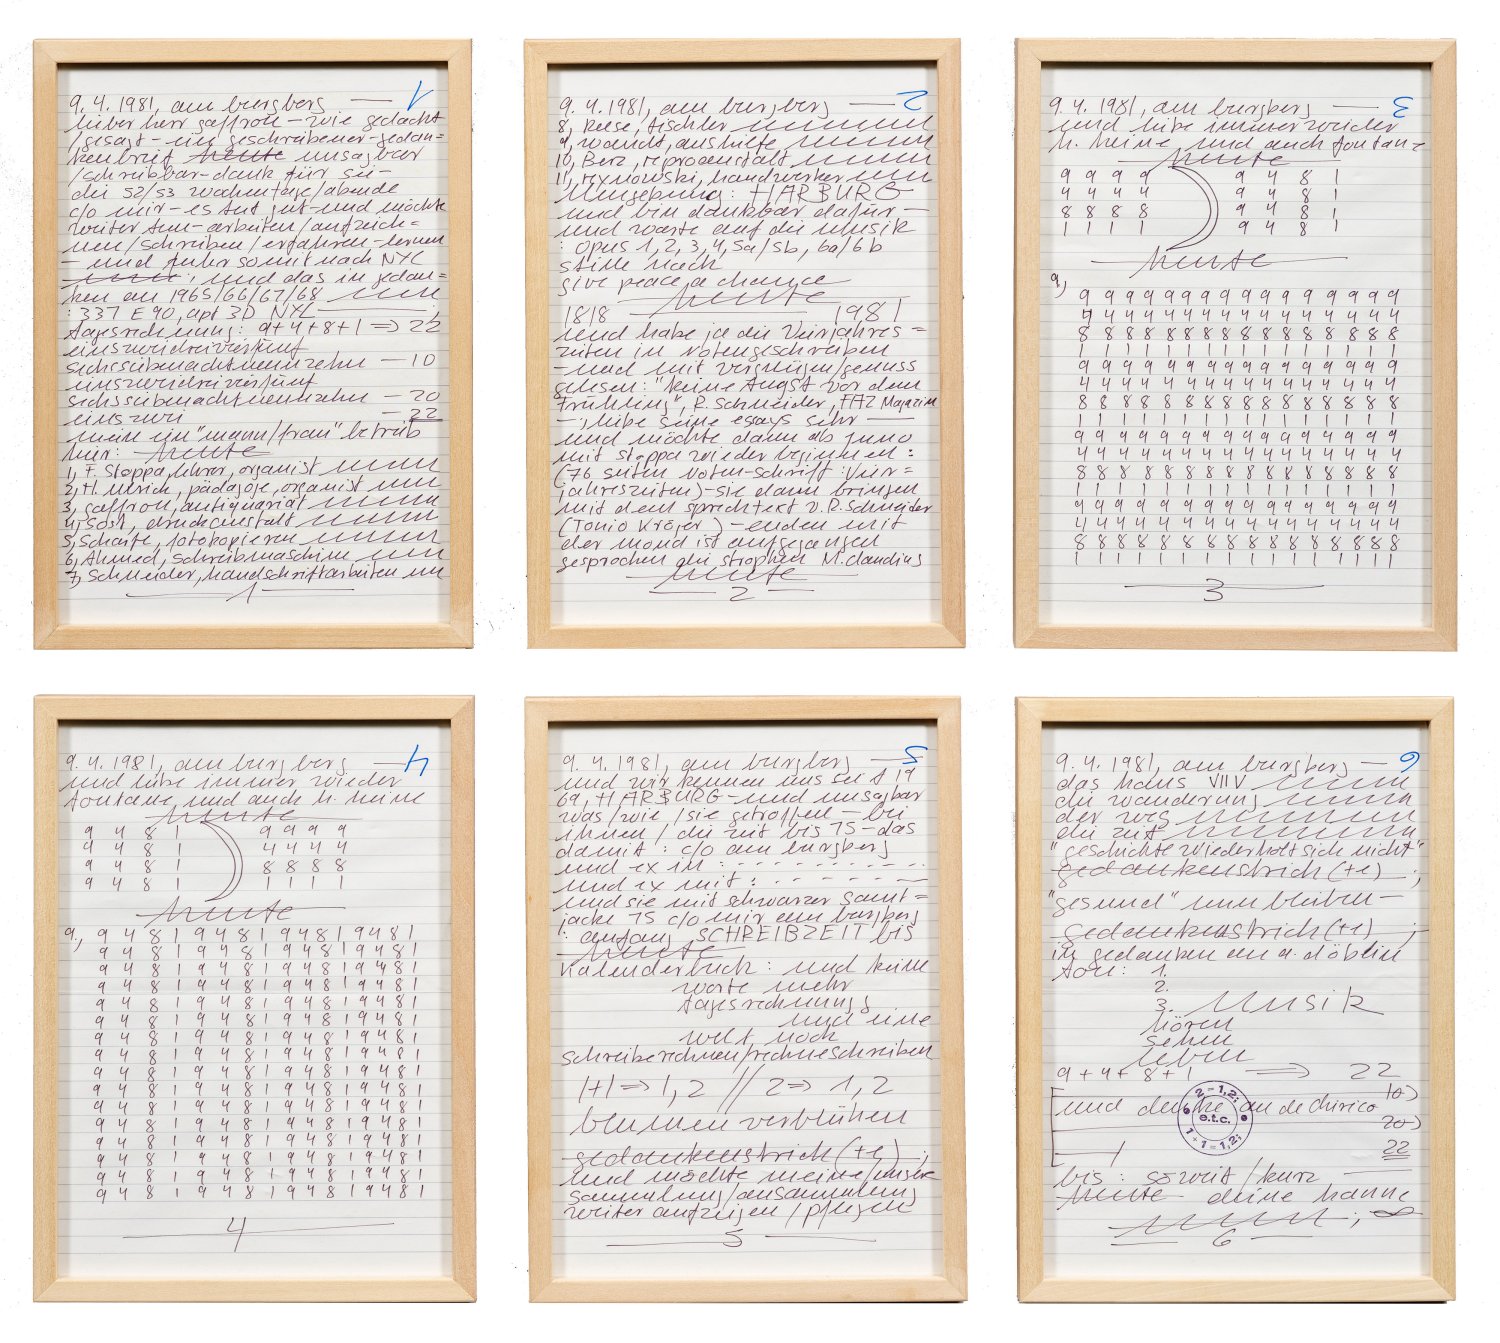 9.4.1981, am burgberg — 1
lieber herr gaffron – wie gedacht
/gesagt – ein geschriebener-gedan=
kenbrief heute unsagbar
/schreibbar-dank für sie –
die 52/53 wochentage/abende
c/o mir – es tut gut – und möchte
weiter tun – arbeiten/aufzeich=
nen/schreiben/erfahren – lernen
– und fuhr somit nach NYC
; und das in gedan=
ken an 1965/66/67/68
: 337 E 90, apt 3D NYC
tagesrechnung: 9+4+8+1 => 22
einszweidreivierfünf
sechssiebenachtneunzehn — 10
einszweidreivierfünf
sechssiebenachtneunzehn — 20
einszwei — 22
mein ein "mann/frau" betrieb
hier: heute
1, F. Stoppa, lehrer, organist
2, H. Ulrich, pädagoge, organist
3, gaffron, antiquariat
4, Sost, druckanstalt
5, Scharfe, fotokopieren
6, Ahmed, schreibmaschine
7, Schneider, handschriftarbeiten
1
9.4.1981, am burgberg — 2
8, Reese, tischler
9, wandt, aushilfe
10, Berz, reproanstalt
11, rexnowski, handwerker
Umgebung: HARBURG
und bin dankbar dafür –
und warte auf die Musik
: opus 1, 2, 3, 4, 5a/5b, 6a/6b
stille nach
give peace a chance
heute
1818 1981
und habe ja die Vierjahres=
zeiten in noten geschrieben
– und mit vergnügen/genuss
gelesen: "keine Angst vor dem
Frühling", R. Schneider, FAZ Magazin
–, liebe seine essays sehr –
und möchte dann ab juno
mit stoppa wieder beginnen:
(76 seiten noten-schrift: Vier=
jahreszeiten) – sie dann bringen
mit dem sprechtext v. R. Schneider
(Tonio Kröger) – enden mit
der mond ist aufgegangen
gesprochen die strophen M. Claudius
heute
2
9.4.1981, am burgberg — 3
und liebe immer wieder
h. heine und auch fontane
heute
9 9 9 9 9 4 8 1
4 4 4 4 9 4 8 1
8 8 8 8 9 4 8 1
1 1 1 1 9 4 8 1
heute
9,
9 9 9 9 9 9 9 9 9 9 9 9 9 9 9 9
4 4 4 4 4 4 4 4 4 4 4 4 4 4 4 4
8 8 8 8 8 8 8 8 8 8 8 8 8 8 8 8
1 1 1 1 1 1 1 1 1 1 1 1 1 1 1 1
9 9 9 9 9 9 9 9 9 9 9 9 9 9 9 9
4 4 4 4 4 4 4 4 4 4 4 4 4 4 4 4
8 8 8 8 8 8 8 8 8 8 8 8 8 8 8 8
1 1 1 1 1 1 1 1 1 1 1 1 1 1 1 1
9 9 9 9 9 9 9 9 9 9 9 9 9 9 9 9
4 4 4 4 4 4 4 4 4 4 4 4 4 4 4 4
8 8 8 8 8 8 8 8 8 8 8 8 8 8 8 8
1 1 1 1 1 1 1 1 1 1 1 1 1 1 1 1
9 9 9 9 9 9 9 9 9 9 9 9 9 9 9 9
4 4 4 4 4 4 4 4 4 4 4 4 4 4 4 4
8 8 8 8 8 8 8 8 8 8 8 8 8 8 8 8
1 1 1 1 1 1 1 1 1 1 1 1 1 1 1 1
3
9.4.1981, am burgberg — 4
und liebe immer wieder
fontane, und auch h. heine
heute
9 4 8 1 9 9 9 9
9 4 8 1 4 4 4 4
9 4 8 1 8 8 8 8
9 4 8 1 1 1 1 1
heute
9, 9 4 8 1 9 4 8 1 9 4 8 1 9 4 8 1
9 4 8 1 9 4 8 1 9 4 8 1 9 4 8 1
9 4 8 1 9 4 8 1 9 4 8 1 9 4 8 1
9 4 8 1 9 4 8 1 9 4 8 1 9 4 8 1
9 4 8 1 9 4 8 1 9 4 8 1 9 4 8 1
9 4 8 1 9 4 8 1 9 4 8 1 9 4 8 1
9 4 8 1 9 4 8 1 9 4 8 1 9 4 8 1
9 4 8 1 9 4 8 1 9 4 8 1 9 4 8 1
9 4 8 1 9 4 8 1 9 4 8 1 9 4 8 1
9 4 8 1 9 4 8 1 9 4 8 1 9 4 8 1
9 4 8 1 9 4 8 1 9 4 8 1 9 4 8 1
9 4 8 1 9 4 8 1 9 4 8 1 9 4 8 1
9 4 8 1 9 4 8 1 9 4 8 1 9 4 8 1
9 4 8 1 9 4 8 1 9 4 8 1 9 4 8 1
9 4 8 1 9 4 8 1 9 4 8 1 9 4 8 1
9 4 8 1 9 4 8 1 9 4 8 1 9 4 8 1
4
9.4.1981, am burgberg — 5
und wir kennen uns seit 19
69, HARBURG – und unsagbar
was/wie/sie getroffen – bei
ihnen/die zeit bis 75 – das
damit: c/o am burgberg
und ex in:
und ex mit:
und sie mit schwarzer samt=
jacke 75 c/o mir am burgberg
: anfang SCHREIBZEIT bis
heute
Kalenderbuch: und keine
worte mehr
tagesrechnung
und eine
welt noch
schreiberechnen/rechneschreiben
1+1 => 1,2 // 2 => 1,2
blumen verblühen
gedankenstrich (+e) ;
und möchte meine/unsere
sammlung/ansammlung
weiter aufzeigen/pflegen
5
9.4.1981, am burgberg — 6
das haus VIIV
die wanderung
der weg
die zeit
"geschichte wiederholt sich nicht"
gedankenstrich (+e) ;
"gesund" nun bleiben –
gedankenstrich (+e) ;
in gedanken an a. döblin
ton: 1.
2.
3. Musik
hören
sehen
leben
9+4+8+1 => 22
10)
und denke an de Chirico
20)
1 22
2 = 1,2;
e.t.c.
1 + 1 = 1,2;
bis: soweit/kurz
heute deine hanne
; ∞
6